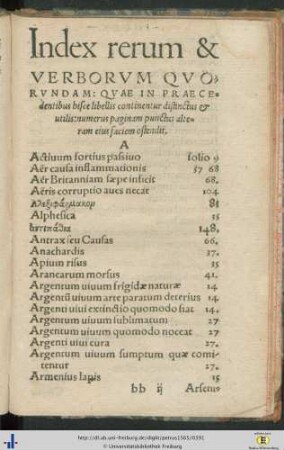 Index rerum &
VERBORVM QVO-
RVNDAM: QVAE IN PRAECE-
dentibus hisce libellis continentur distinctus &
utilis: numerus paginam punctus alte-
ram eius faciem ostendit.
A
Actiuum fortius passiuo folio 9
Aër causa inflammationis 57 68
Aër Britanniam sæpe inficit 68.
Aëris corruptio aues necat 104
Αλεξιφάρμακομ 81
Alphesica 15
148.
Antrax seu Causas 66.
Anachardis 17.
Apium risus 15
Aranearum morsus 41.
Argentum uiuum frigidæ naturæ 14
Argentū uiuum arte paratum deterius 14
Argenti uiui extinctio quomodo fiat 14.
Argentum uiuum sublimatum 27
Argentum uiuum quomodo noceat 27
Argenti uiui cura 27.
Argentum uiuum sumptum quæ comi-
tentur 27.
Armenius lapis 15
bb ij Arsenus
http://dl.ub.uni-freiburg.de/diglit/petrus1565/0391
© Universitätsbibliothek Freiburg